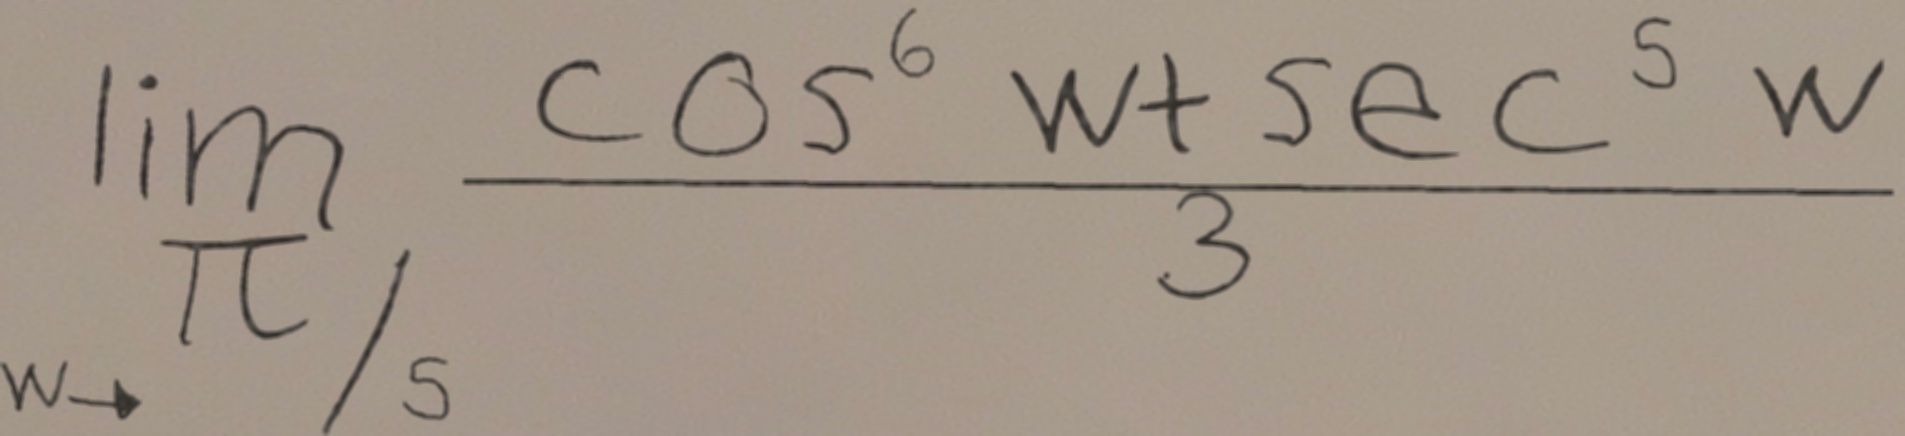 lim_{w→π/5} \frac{cos^6 w + sec^5 w}{3}